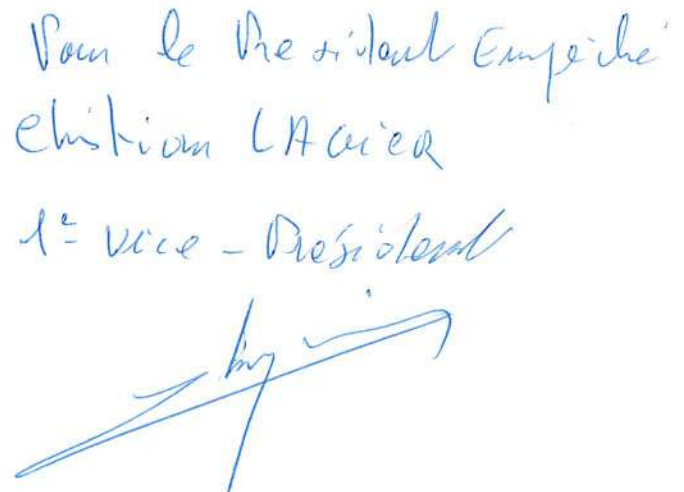 Pour le Président Empêché
Christian LAGIER
1e vice-Président